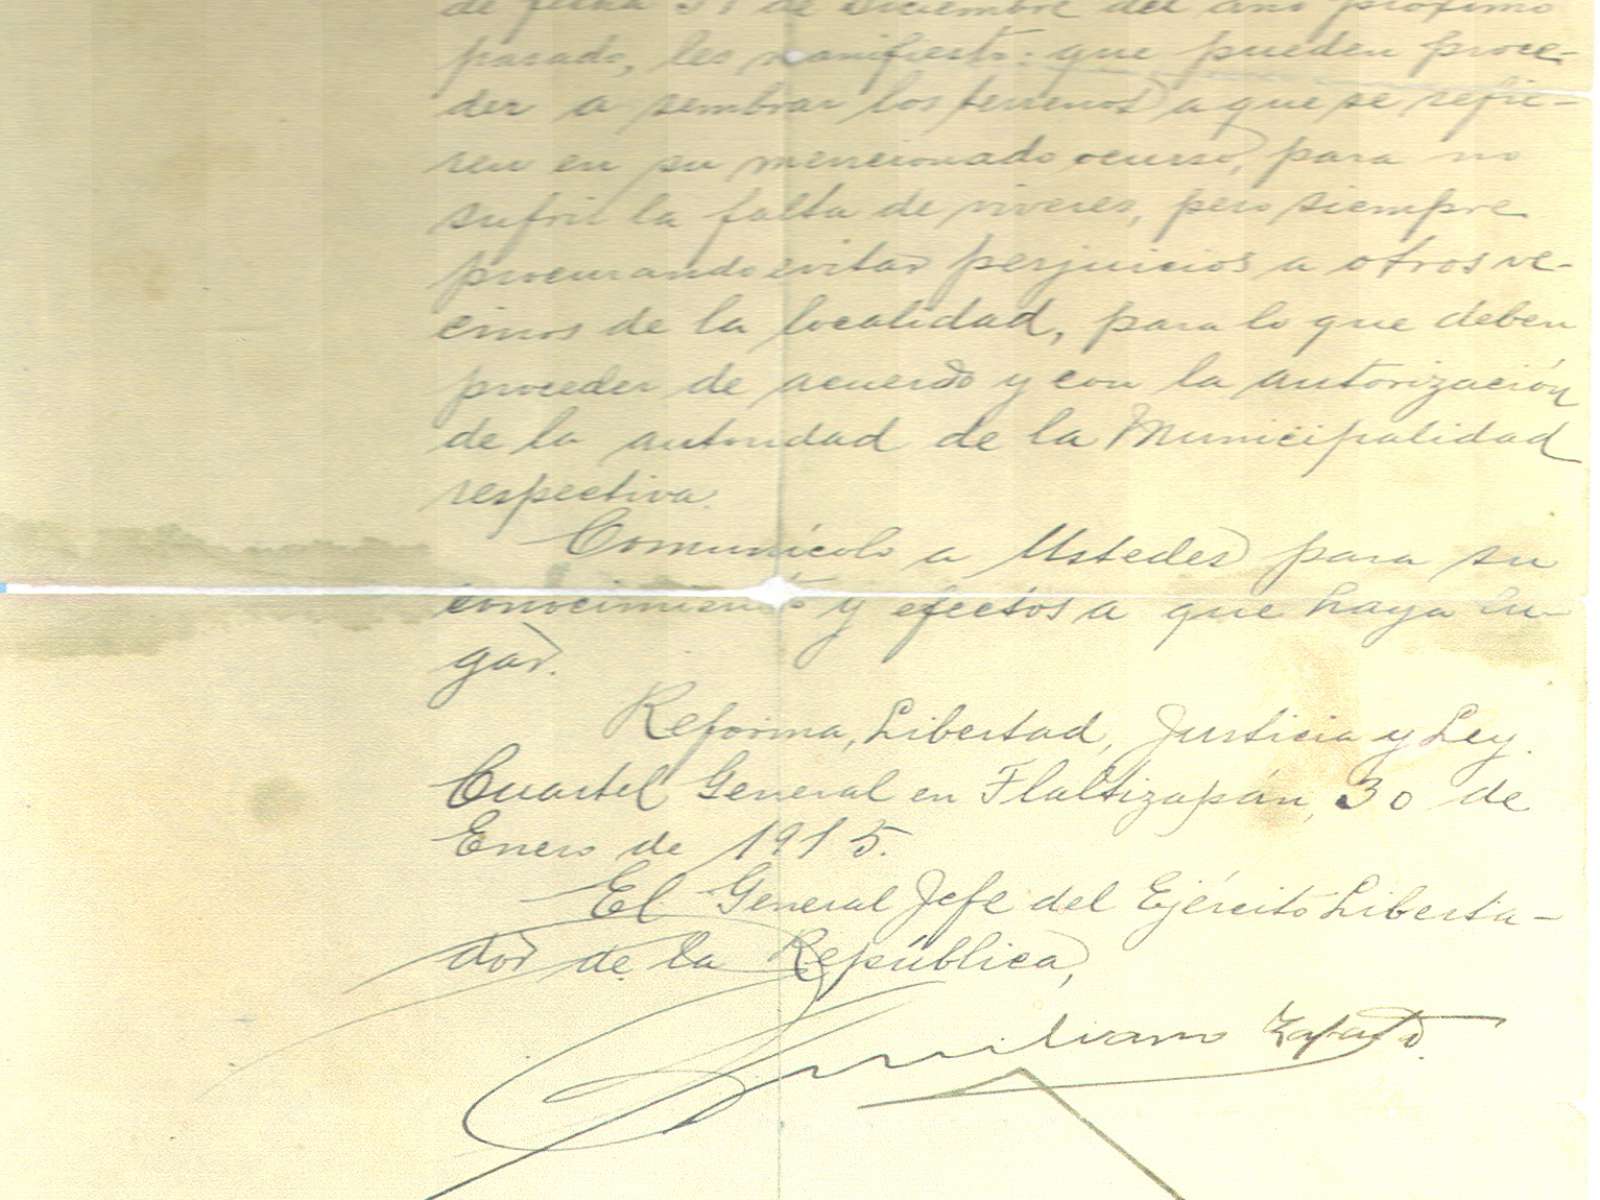 de fecha 31 de Diciembre del año próximo
pasado, les manifiesto: que pueden proce-
der a sembrar los terrenos a que se refie-
ren en su mencionado ocurso, para no
sufrir la falta de viveres, pero siempre
procurando evitar perjuicios a otros ve-
cinos de la localidad, para lo que deben
proceder de acuerdo y con la autorización
de la autoridad de la Municipalidad
respectiva.
Comunícolo a Ustedes para su
conocimiento y efectos a que haya lu-
gar.
Reforma, Libertad, Justicia y Ley.
Cuartel General en Tlaltizapán, 30 de
Enero de 1915.
El General Jefe del Ejército Liberta-
dor de la República,
Emiliano Zapata